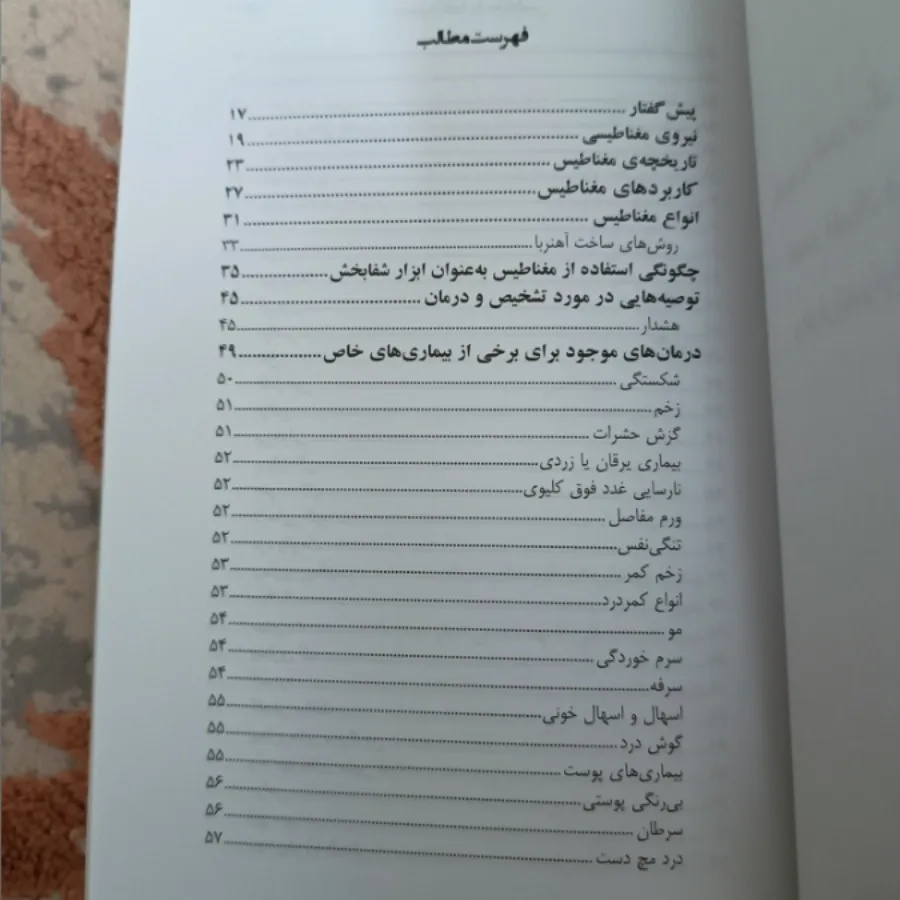 فهرست مطالب
پیش گفتار ... ۱۷
نیروی مغناطیسی ... ۱۹
تاریخچه‌ی مغناطیس ... ۲۳
کاربردهای مغناطیس ... ۲۷
انواع مغناطیس ... ۳۱
روش‌های ساخت آهنربا ... ۳۳
چگونگی استفاده از مغناطیس به‌عنوان ابزار شفابخش ... ۳۵
توصیه‌هایی در مورد تشخیص و درمان ... ۴۵
هشدار ... ۴۵
درمان‌های موجود برای برخی از بیماری‌های خاص ... ۴۹
شکستگی ... ۵۰
زخم ... ۵۱
گزش حشرات ... ۵۱
بیماری یرقان یا زردی ... ۵۲
نارسایی غدد فوق کلیوی ... ۵۲
ورم مفاصل ... ۵۲
تنگی‌نفس ... ۵۲
زخم کمر ... ۵۳
انواع کمردرد ... ۵۳
مو ... ۵۴
سرم خوردگی ... ۵۴
سرفه ... ۵۴
اسهال و اسهال خونی ... ۵۵
گوش درد ... ۵۵
بیماری‌های پوست ... ۵۵
بی‌رنگی پوستی ... ۵۶
سرطان ... ۵۶
درد مچ دست ... ۵۷